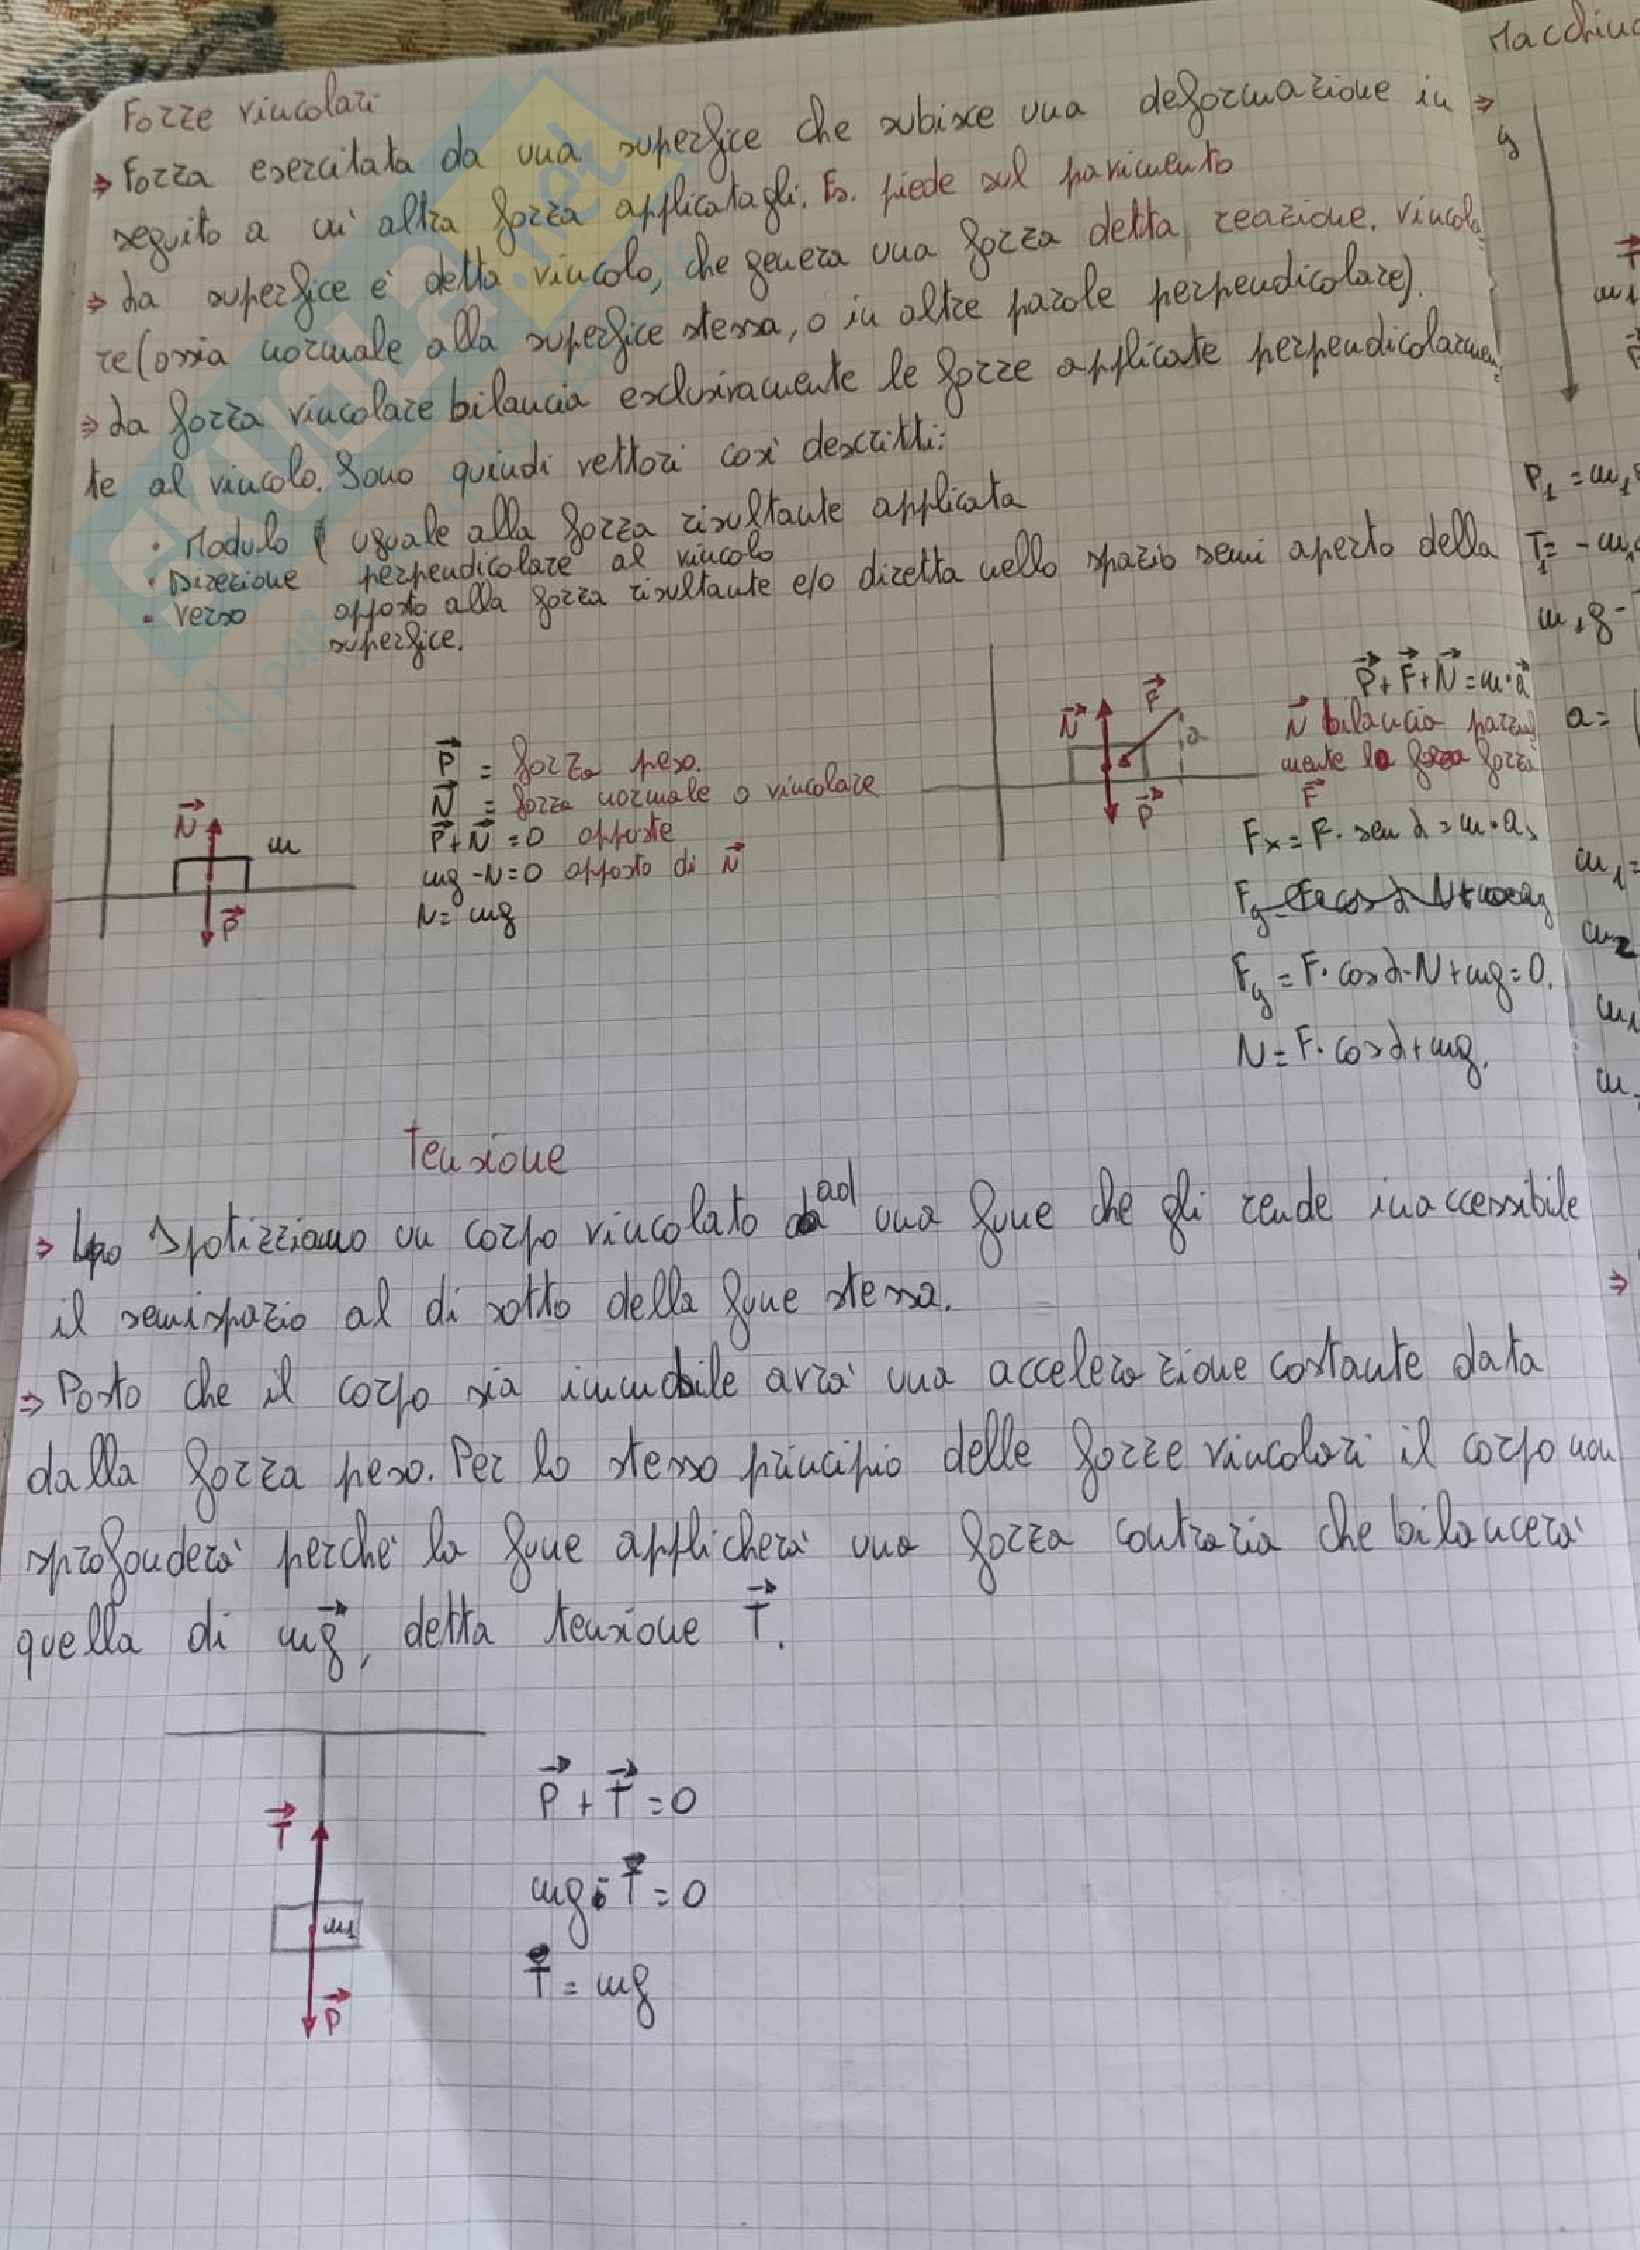 Forze vincolari
⇒ Forza esercitata da una superfice che subisce una deformazione in
seguito a un' altra forza applicatagli. Es. piede sul pavimento
⇒ La superfice è detta vincolo, che genera una forza detta reazione. vincola
re (ossia normale alla superfice stessa, o in altre parole perpendicolare).
⇒ La forza vincolare bilancia esclusivamente le forze applicate perpendicolarmen
te al vincolo. Sono quindi vettori così descritti:
• Modulo uguale alla forza risultante applicata
• Direzione perpendicolare al vincolo
• Verso opposto alla forza risultante e/o diretta nello spazio semi aperto della
superfice.
N⃗ m
P⃗
P⃗ = forza peso.
N⃗ = forza normale o vincolare
P⃗+N⃗=0 opposte
mg-N=0 opposto di N⃗
N= mg
N⃗ F⃗
P⃗
P⃗+F⃗+N⃗=m·a⃗
N⃗ bilancia parzial
mente la forza
F⃗
Fx=F· sen α=m·ax
Fy=F·cosα-N+mg=0.
N=F·cosα+mg.
Tensione
⇒ Ipotizziamo un corpo vincolato ad una fune che gli rende inaccessibile
il semispazio al di sotto della fune stessa.
⇒ Posto che il corpo sia immobile avrà una accelerazione costante data
dalla forza peso. Per lo stesso principio delle forze vincolari il corpo non
sprofonderà perchè la fune applicherà una forza contraria che bilancerà
quella di mg⃗, detta tensione T⃗.
T⃗
m1
P⃗
P⃗+T⃗=0
mg-T=0
T=mg
⇒
y
P1=m1
T1=-m1
m1g-
a=
m1=
m2
m1